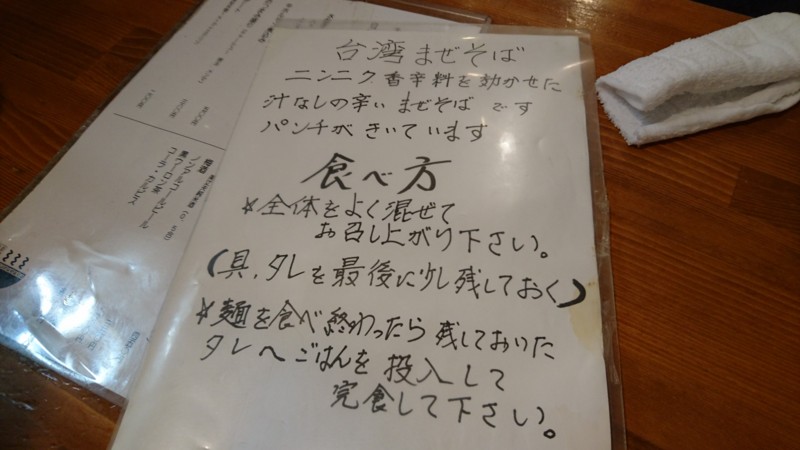 台湾まぜそば
ニンニク香辛料を効かせた
汁なしの辛いまぜそばです
パンチがきいています
食べ方
☆全体をよく混ぜて
お召し上がり下さい。
(具、タレを最後に少し残しておく)
☆麺を食べ終わったら残しておいた
タレへごはんを投入して
完食して下さい。
ノンアルコールビール
黒ウーロン茶
コーラ・カルピス